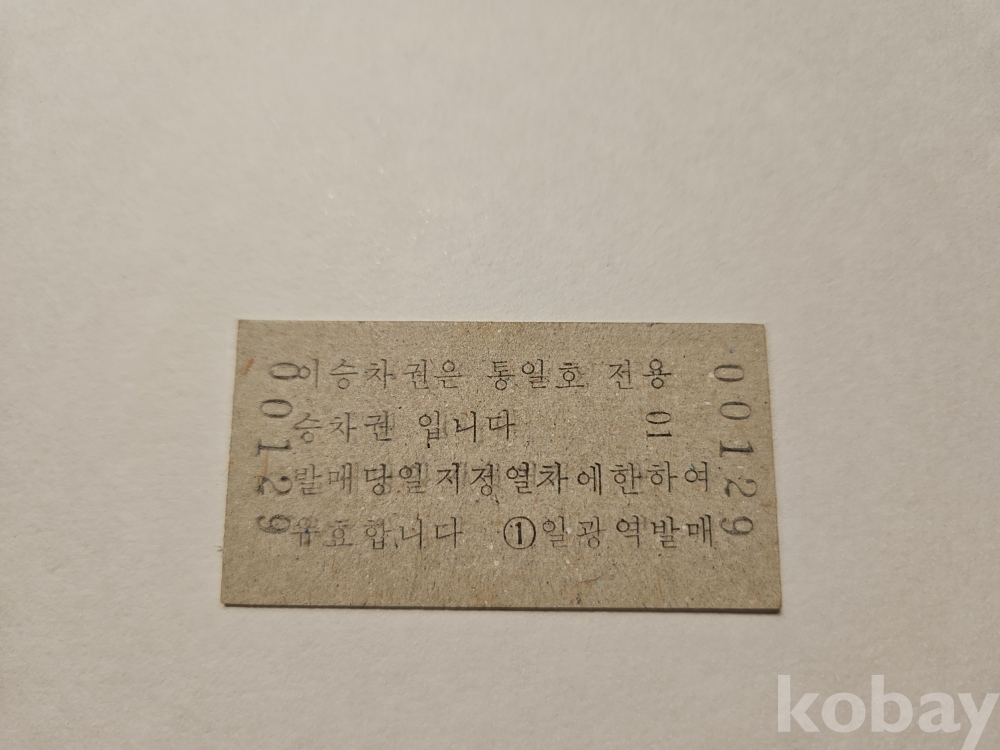 이승차권은 통일호 전용
승차권 입니다 01
발매당일지정열차에한하여
유효합니다 ①일광역발매
00129
00129
kobay